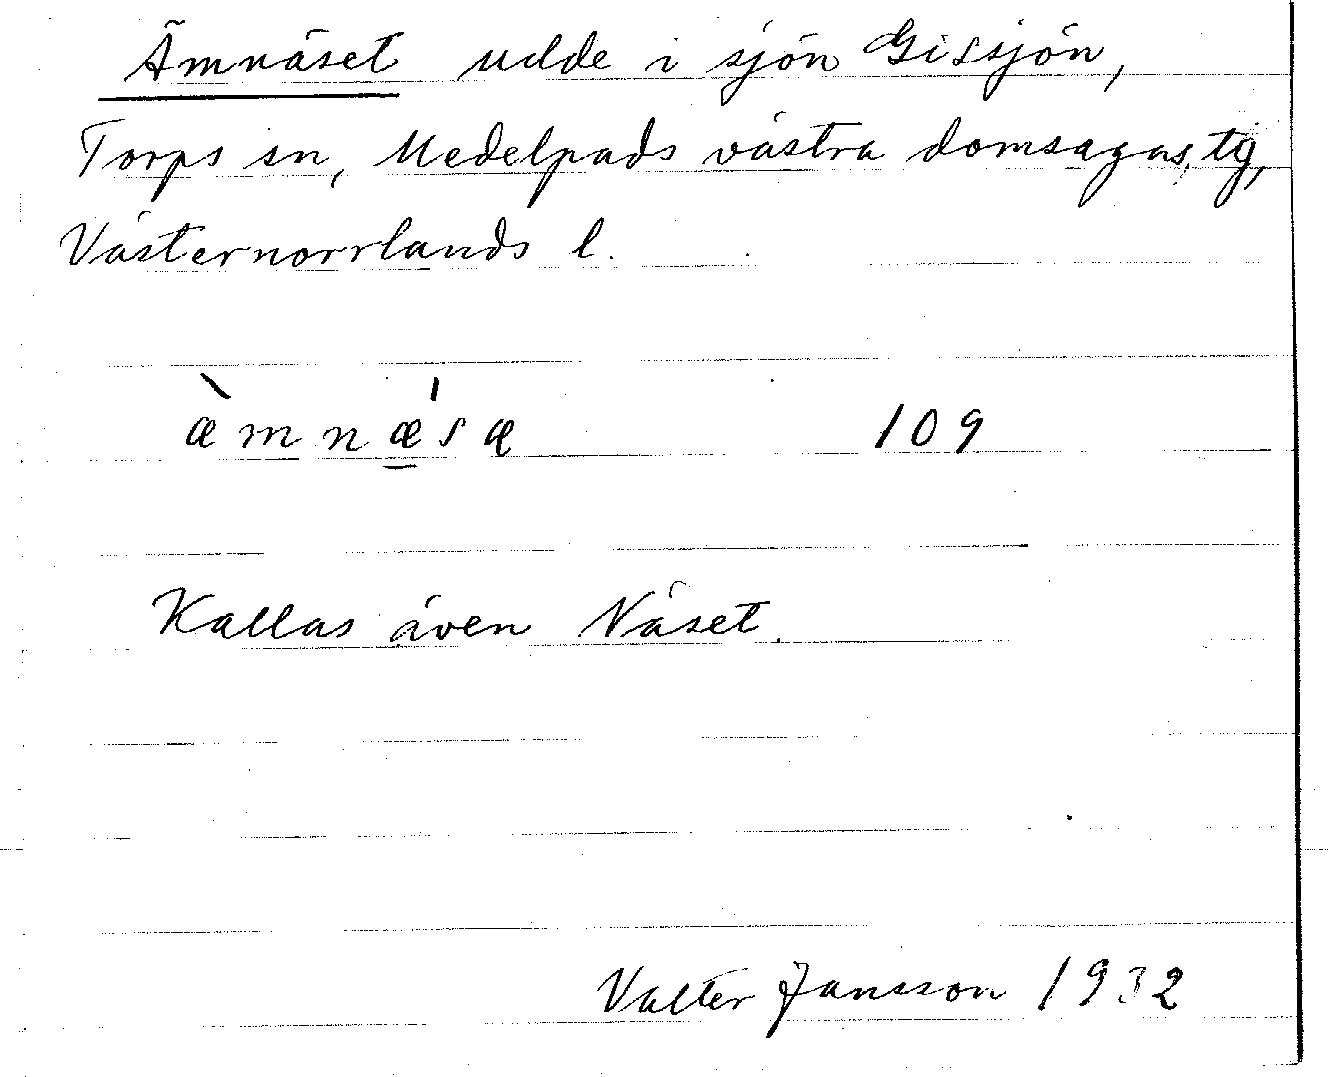 Ämnäset udde i sjön Gissjön,
Torps sn, Medelpads västra domsagas tg,
Västernorrlands l.
æ̀mnǽ̲sæ 109
Kallas även Näset.
Valter Jansson 1932